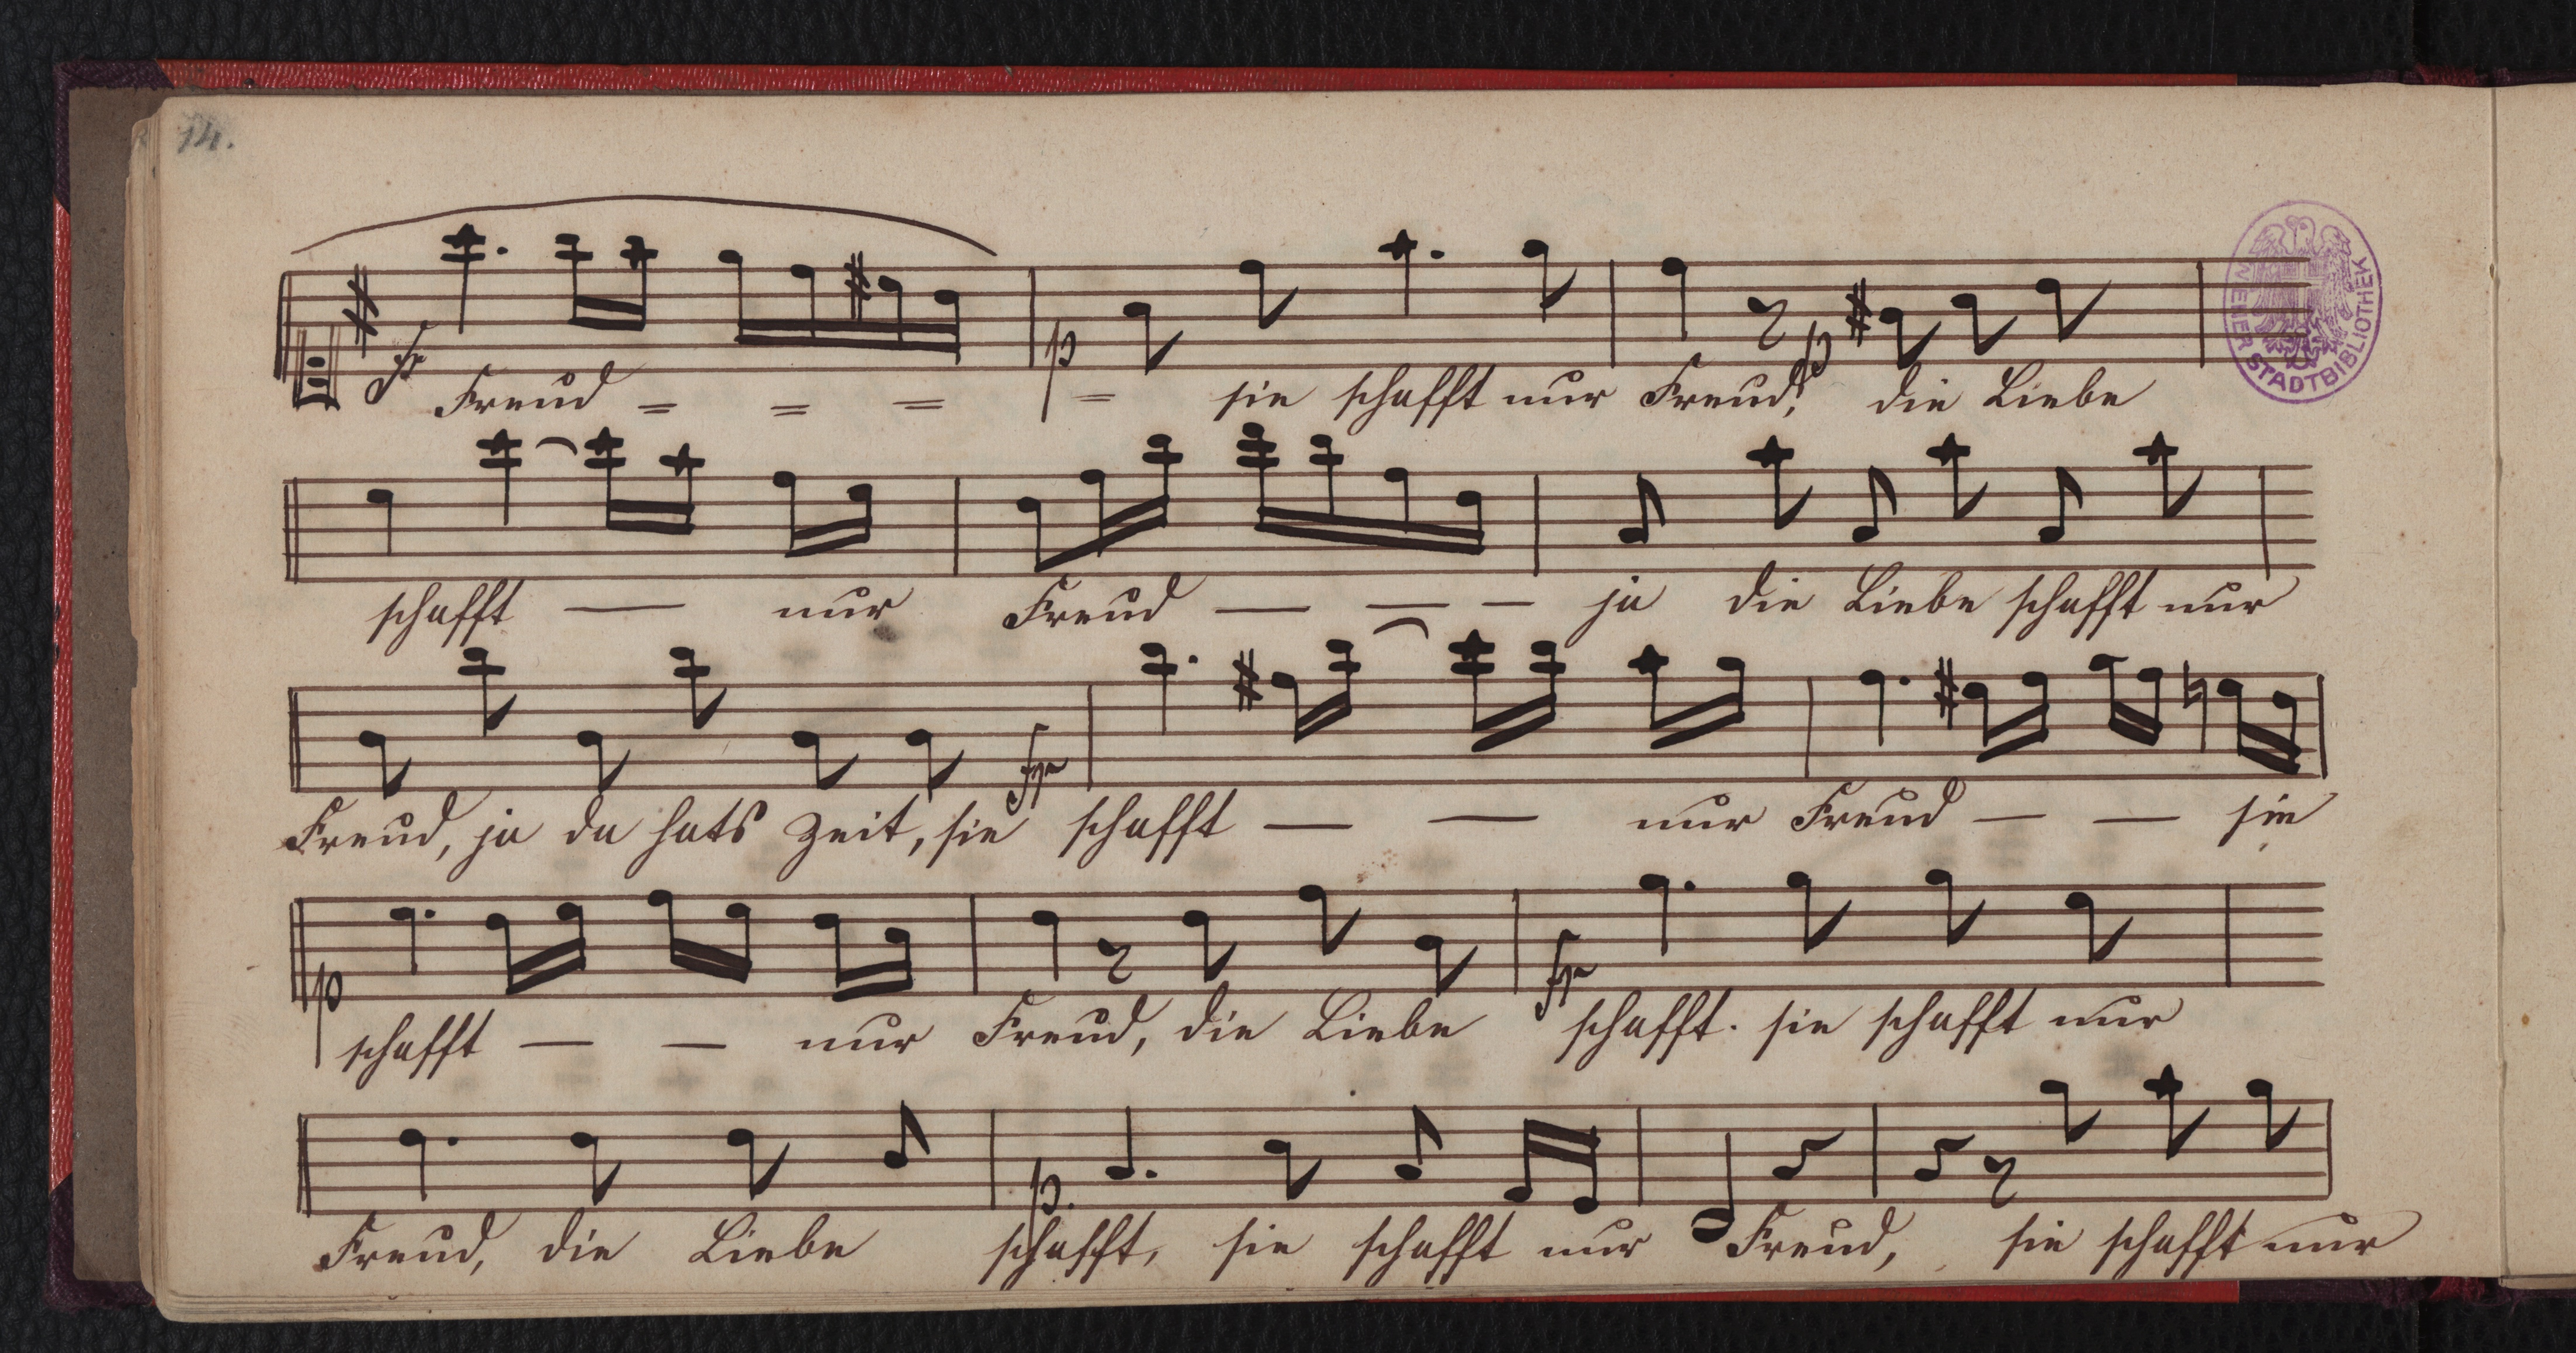 14.
fz
p
p
Freud = = = = sie schafft nur Freud! die Liebe
WIENER STADTBIBLIOTHEK
schafft — nur Freud — — — ja die Liebe schafft nur
fz
Freud, ja da hats Zeit, sie schafft — — nur Freud — — sie
p
fz
schafft — — nur Freud, die Liebe schafft. sie schafft nur
p.
Freud, die Liebe schafft, sie schafft nur Freud, sie schafft nur